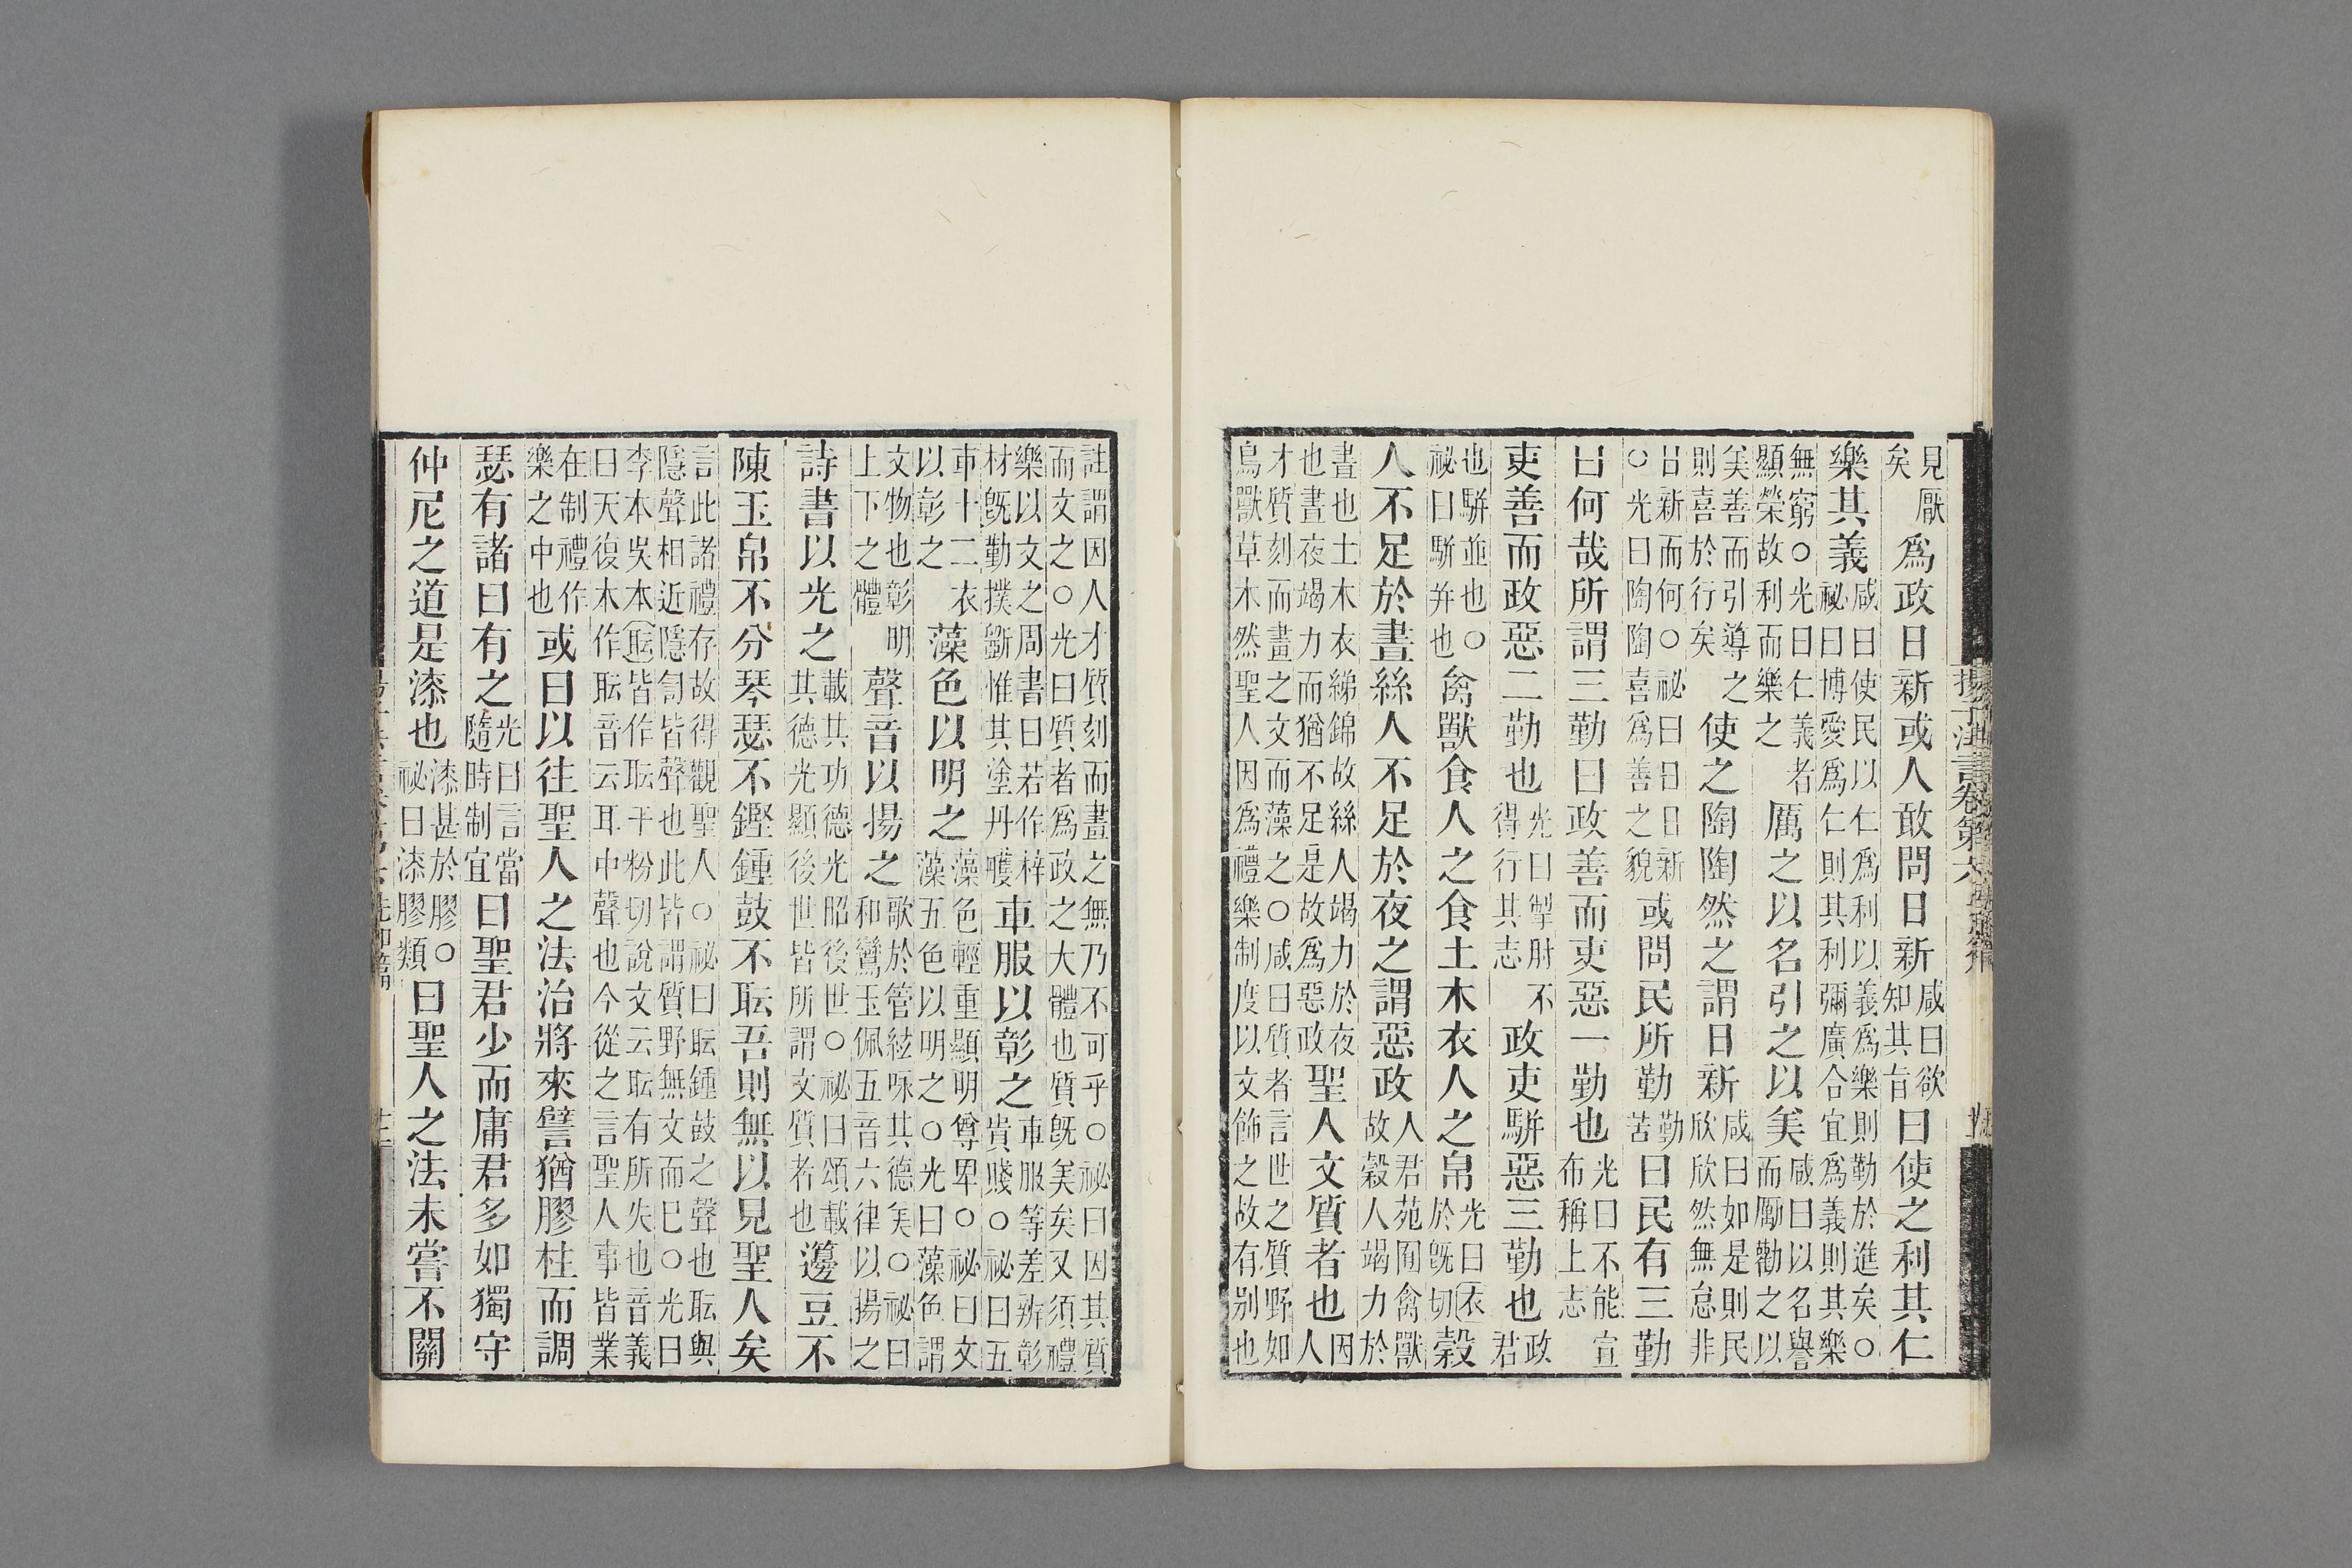 見厭矣爲政日新或人敢問日新咸曰欲知其旨曰使之利其仁
樂其義咸曰使民以仁爲利以義爲樂則勤於進矣○祕曰博愛爲仁則其利彌廣合宜爲義則其樂
無窮○光曰仁義者顯榮故利而樂之厲之以名引之以美咸曰以名譽而勵勸之以
美善而引導之則喜於行矣使之陶陶然之謂日新咸曰如是則民欣欣然無怠非
日新而何○祕曰日日新○光曰陶陶喜爲善之貌或問民所勤勤苦曰民有三勤
曰何哉所謂三勤曰政善而吏惡一勤也光曰不能宣布稱上志
吏善而政惡二勤也光曰掣肘不得行其志政吏駢惡三勤也政君
也駢並也○祕曰駢并也禽獸食人之食土木衣人之帛光曰衣於旣切穀
人不足於晝絲人不足於夜之謂惡政人君苑囿禽獸故穀人竭力於
晝也土木衣綈錦故絲人竭力於夜也晝夜竭力而猶不足是故爲惡政聖人文質者也因人
才質刻而畫之文而藻之○咸曰質者言世之質野如鳥獸草木然聖人因爲禮樂制度以文飾之故有别也
註謂因人才質刻而畫之無乃不可乎○祕曰因其質而文之○光曰質者爲政之大體也質旣美矣又須禮
樂以文之周書曰若作梓材旣勤樸斲惟其塗丹雘車服以彰之車服等差辨彰貴賤○祕曰五
車十二衣以彰之藻色以明之藻色輕重顯明尊卑○祕曰文藻五色以明之○光曰藻色謂
文物也彰明上下之體聲音以揚之歌於管絃咏其德美○祕曰和鸞玉佩五音六律以揚之
詩書以光之載其功德光昭後世○祕曰頌載其德光顯後世皆所謂文質者也籩豆不
陳玉帛不分琴瑟不鏗鍾鼓不耺吾則無以見聖人矣
言此諸禮存故得觀聖人○祕曰耺鍾鼓之聲也耺與隱聲相近隱訇皆聲也此皆謂質野無文而已○光曰
李本吳本耺皆作耺平粉切說文云耺有所失也音義曰天復本作耺音云耳中聲也今從之言聖人事皆業
在制禮作樂之中也或曰以往聖人之法治將來譬猶膠柱而調
瑟有諸曰有之光曰言當隨時制宜曰聖君少而庸君多如獨守
仲尼之道是漆也漆甚於膠○祕曰漆膠類曰聖人之法未嘗不關